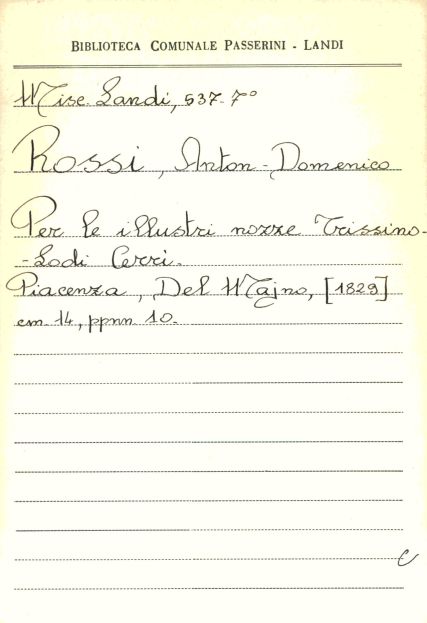 BIBLIOTECA COMUNALE PASSERINI - LANDI
Misc. Landi, 537. 7º
Rossi, Anton-Domenico
Per le illustri nozze Trissino-
-Lodi Cerri.
Piacenza, Del Majno, [1829]
cm. 14, ppnn 10.
C